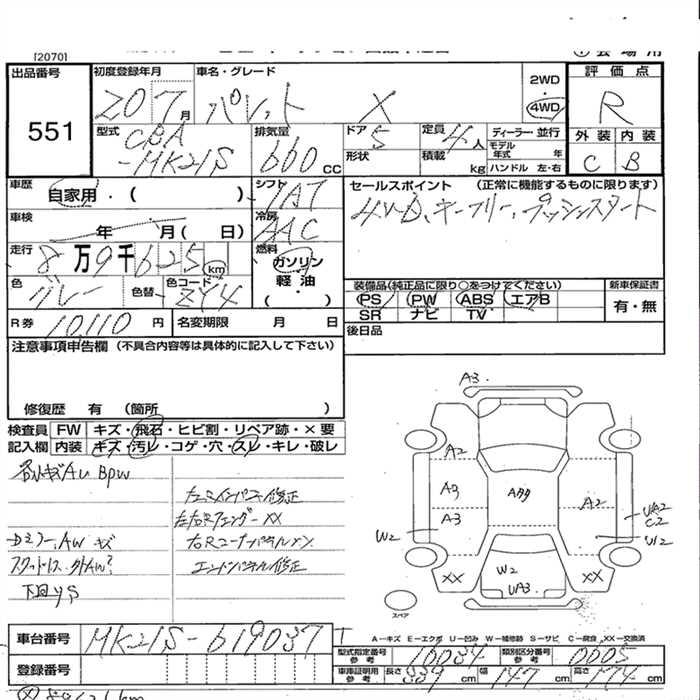 [2070]
出品番号 初度登録年月 車名・グレード 2WD ・ 4WD 評価点
551 207月 パレット X R
型式 CBA-MK21S 排気量 660CC ドア 5 定員 4人 ディーラー 並行 外装 内装
形状 積載 kg モデル年式 年 ハンドル 左・右 C B
車歴 自家用・( ) シフト IAT セールスポイント (正常に機能するものに限ります)
車検 年 月( 日) 冷房 AAC 4WD、キーフリー、プッシュスタート
走行 8万9千625km 燃料 ガソリン 軽油 ・( )
色 グレー 色替 色コード ZY4
装備品(純正品に限り○をつけてください) 新車保証書
PS PW ABS エアB 有・無
SR ナビ TV
R券 10,110円 名変期限 月 日 後日品
注意事項申告欄 (不具合内容等は具体的に記入して下さい)
修復歴 有 (箇所 )
検査員記入欄 FW キズ・飛石・ヒビ割・リペア跡・×要
内装 キズ・汚レ・コゲ・穴・スレ・キレ・破レ
AU BPW
修正
左右Rフェンダー XX
Dミラー、AW キズ
エンドパネル修正
A3
A2
A9
A3
A99
A2
UA2
C2
W2
U2
W2
UA3
XX
XX
スペア
車台番号 MK21S-619037
登録番号
A−キズ E−エクボ U−凹み W−補修跡 S−サビ C−腐食 XX−交換済
型式指定番号 参考 10034 類別区分番号 参考 0005
車庫証明用 参考 長さ 339cm 幅 147cm 高さ 174cm